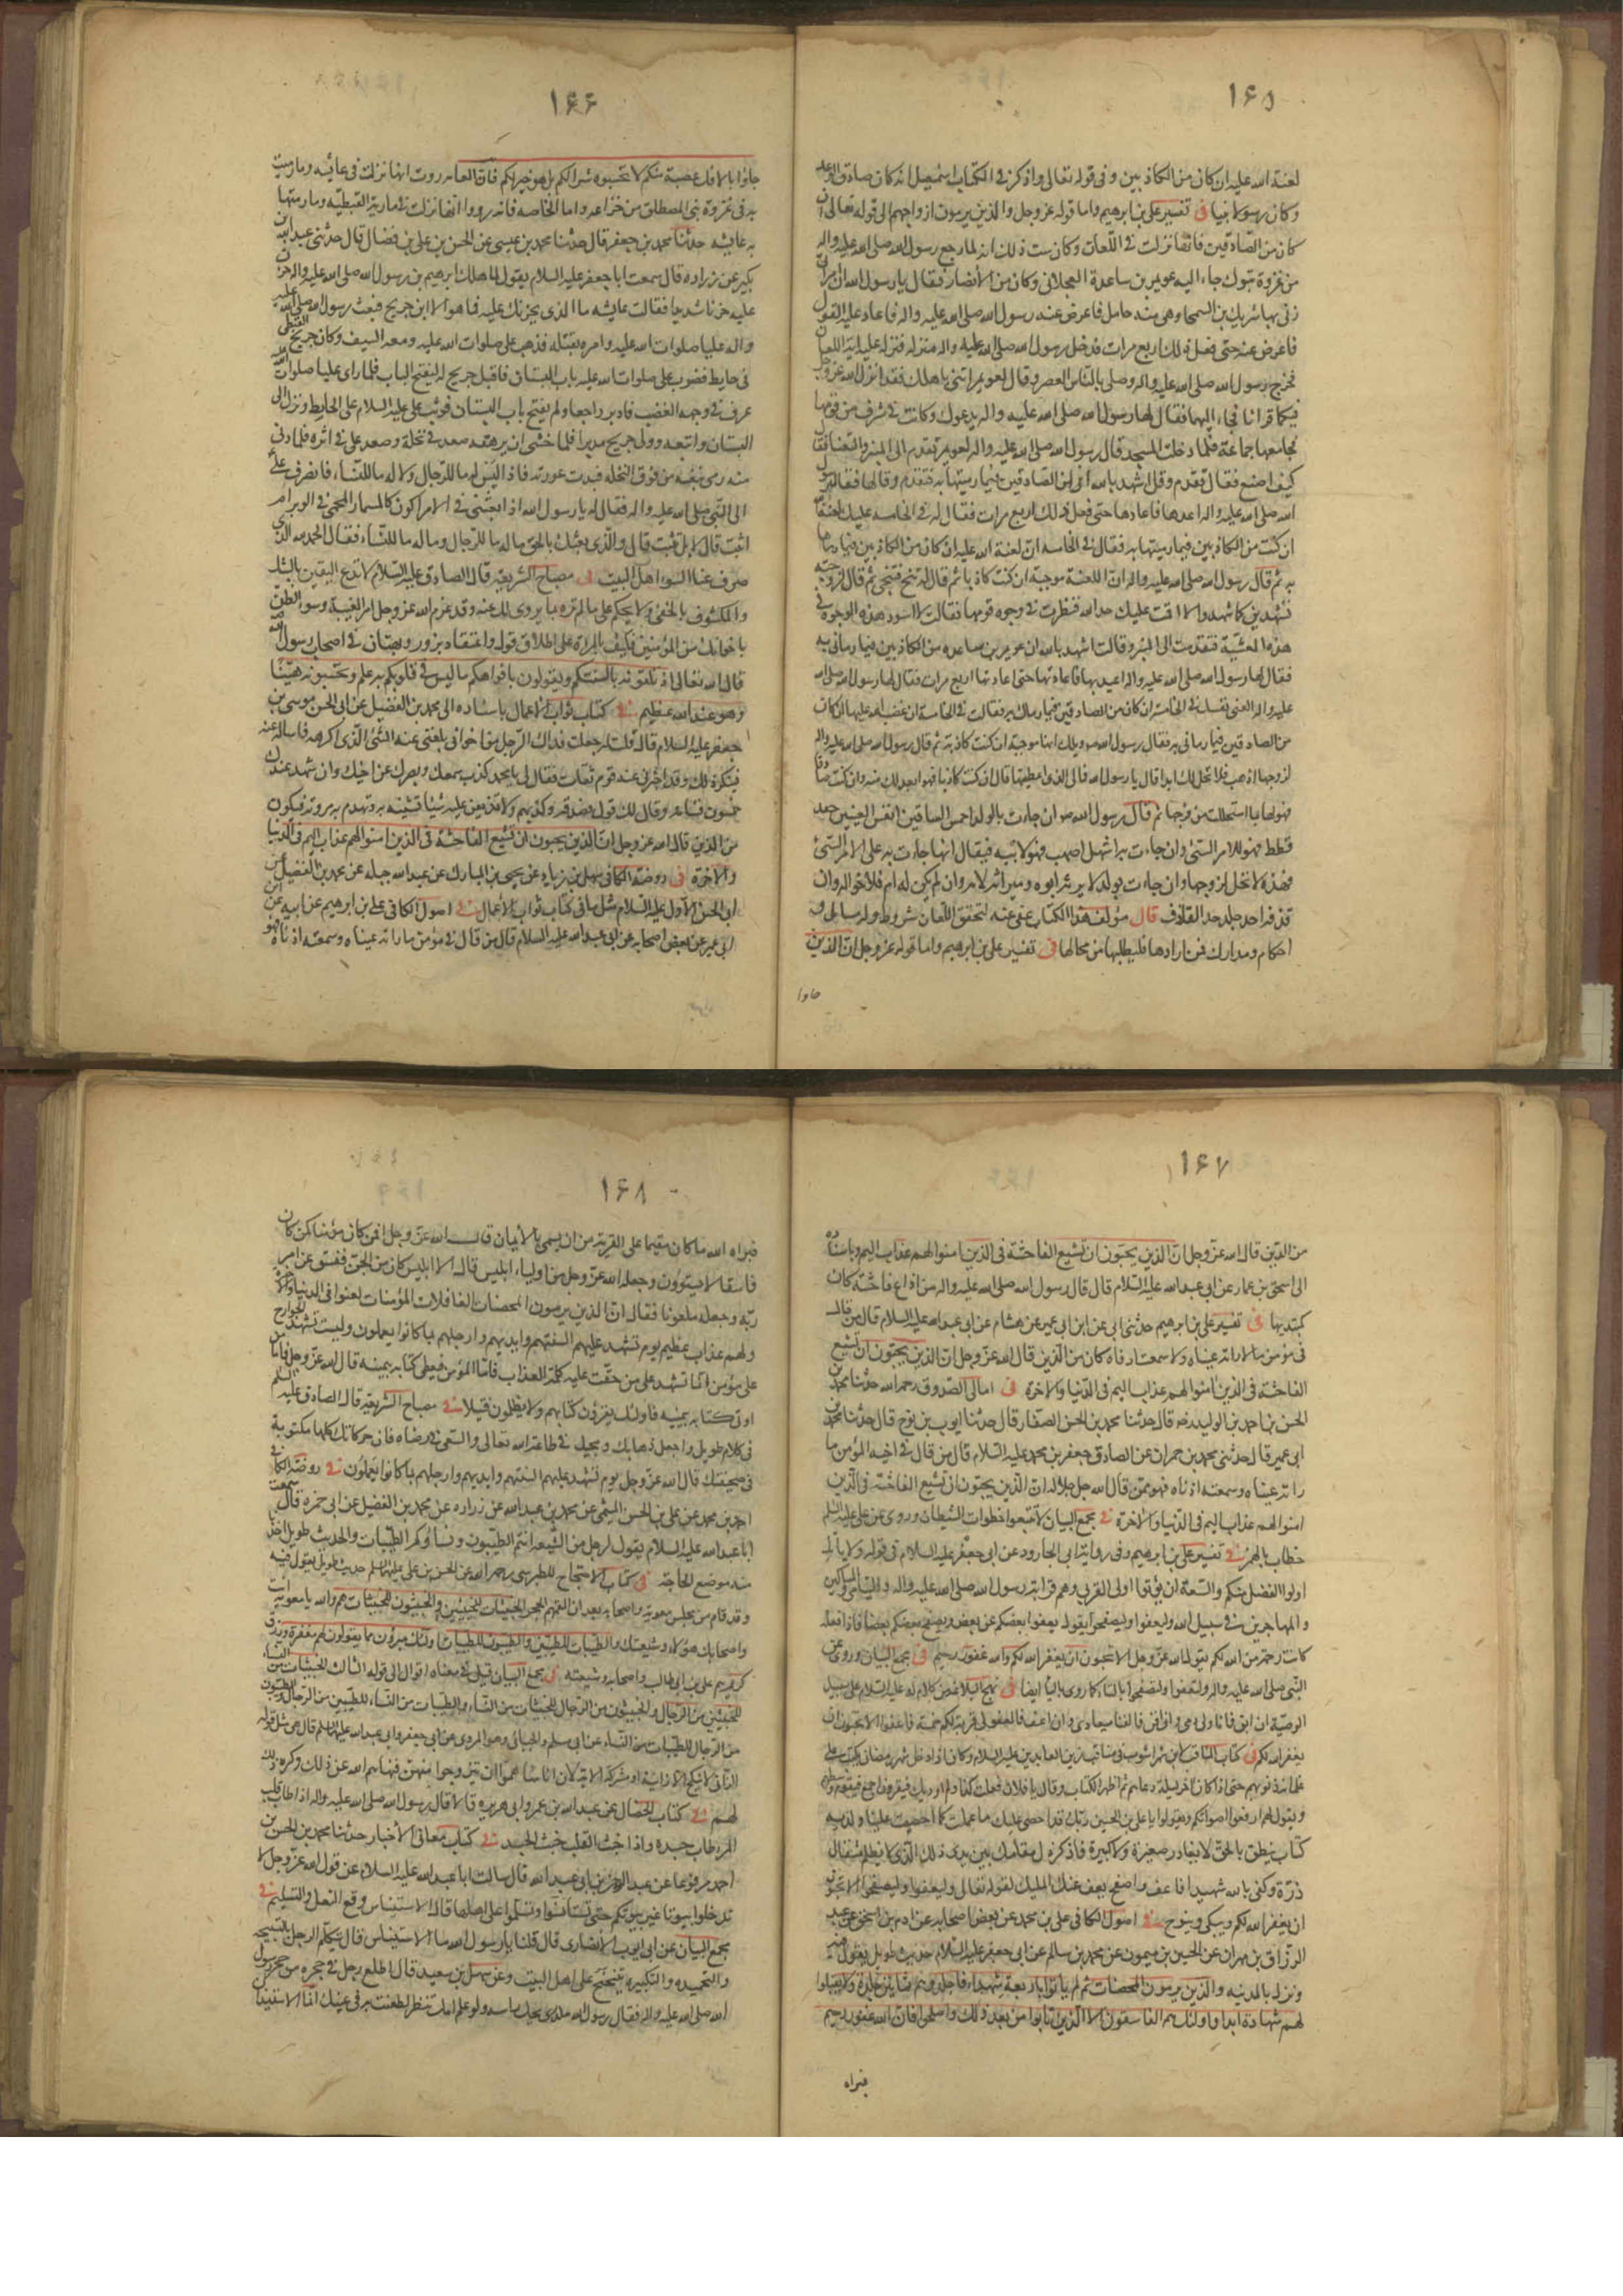 ١۶۵
لعنة الله عليه ان كان من الكاذبين وفى قوله تعالى واذكر فى الكتاب اسمعيل انه كان صادق الوعد
وكان رسولا نبيا فى تفسير على بن ابرهيم واما قوله عز وجل والذين يرمون ازواجهم الى قوله تعالى ان
كان من الصادقين فانها نزلت فى اللعان وكان سبب ذلك انه لما رجع رسول الله صلى الله عليه واله
من غزوة تبوك جاء اليه عويمر بن ساعدة العجلانى وكان من الأنصار فقال يا رسول الله ان امراتى
زنى بها شريك بن السمحا وهى منه حامل فاعرض عنه رسول الله صلى الله عليه واله فاعاد عليه القول
فاعرض عنه حتى فعل ذلك اربع مرات فدخل رسول الله صلى الله عليه واله منزله فنزلت عليه اية اللعان
فخرج رسول الله صلى الله عليه واله وصلى بالناس العصر وقال لعويمر ايتنى باهلك فقد انزل الله عز وجل
فيكما قرانا فجاء اليها فقال لها رسول الله صلى الله عليه واله يدعوك وكانت فى شرف من قومها
فجاء معها جماعة فلما دخلت المسجد قال رسول الله صلى الله عليه واله لعويمر تقدم الى المنبر والتعنا فقال
كيف اصنع فقال تقدم وقل اشهد بالله انى لمن الصادقين فيما رميتها به فتقدم وقالها فقال رسول
الله صلى الله عليه واله اعدها فاعادها حتى فعل ذلك اربع مرات فقال له فى الخامسة عليك لعنة الله
ان كنت من الكاذبين فيما رميتها به فقال فى الخامسة ان لعنة الله عليه ان كان من الكاذبين فيما رماها
به ثم قال رسول الله صلى الله عليه واله ان اللعنة موجبة ان كنت كاذبا ثم قال له تنح فتنحى ثم قال لزوجته
تشهدين كما شهد والا اقمت عليك حد الله فنظرت فى وجوه قومها فقالت لا اسود هذه الوجوه فى
هذه العشية فتقدمت الى المنبر وقالت اشهد بالله ان عويمر بن ساعده من الكاذبين فيما رمانى به
فقال لها رسول الله صلى الله عليه واله اعيديها فاعادتها حتى اعادتها اربع مرات فقال لها رسول الله صلى الله
عليه واله العنى نفسك فى الخامسة ان كان من الصادقين فيما رماك به فقالت فى الخامسة ان غضب الله عليها ان كان
من الصادقين فيما رمانى به فقال رسول الله ص ويلك انها موجبة ان كنت كاذبة ثم قال رسول الله صلى الله عليه واله
لزوجها اذهب فلا تحل لك ابدا قال يا رسول الله فمالى الذى اعطيتها قال ان كنت كاذبا فهو ابعد لك منه وان كنت صادقا
فهو لها بما استحللت من فرجها ثم قال رسول الله ص ان جاءت بالولد احمس الساقين انفس العينين جعد
قطط فهو للامر السئ وان جاءت به اشهل اصهب فهو لابيه فيقال انها جاءت به على الامر السئ
فهذه لا تحل لزوجها وان جاءت بولد لا يرثه ابوه وميراثه لامه وان لم يكن له ام فلاخواله وان
قذفه احد جلد حد القاذف قال مؤلف هذا الكتاب عفى عنه لتحقق اللعان شروط وله مسايل وله
احكام ومدارك فمن ارادها فليطلبها من محالها فى تفسير على بن ابرهيم واما قوله عز وجل ان الذين
جاوا
١۶۶
جاؤا بالافك عصبة منكم لا تحسبوه شرا لكم بل هو خير لكم فان العامه روت انها نزلت فى عائشه وما رميت
به فى غزوة بنى المصطلق من خزاعه واما الخاصه فانه رووا انها نزلت فى مارية القبطيه وما رمتها
به عايشه حدثنا محمد بن جعفر قال حدثنا محمد بن عيسى عن الحسن بن على بن فضال قال حدثنى عبد الله بن
بكير عن زراره قال سمعت ابا جعفر عليه السلام يقول لما هلك ابرهيم بن رسول الله صلى الله عليه واله حزن
عليه حزنا شديدا فقالت عايشه ما الذى يحزنك عليه فما هو الا ابن جريح فبعث رسول الله صلى الله عليه
واله عليا صلوات الله عليه وامره بقتله فذهب على صلوات الله عليه ومعه السيف وكان جريح القبطى
فى حايط فضرب على صلوات الله عليه باب البستان فاقبل جريح له ليفتح الباب فلما راى عليا صلوات الله عليه
عرف فى وجهه الغضب فادبر راجعا ولم يفتح باب البستان فوثب على عليه السلام على الحايط ونزل الى
البستان واتبعه وولى جريح مدبرا فلما خشى ان يرهقه صعد فى نخلة وصعد على فى اثره فلما دنى
منه رمى بنفسه من فوق النخله فبدت عورته فاذا ليس له ما للرجال ولا له ما للنساء فانصرف على
الى النبى صلى الله عليه واله فقال له يا رسول الله اذا بعثتنى فى الامر اكون كالمسمار المحمى فى الوبر ام
اثبت قال لا بل تثبت قال والذى بعثك بالحق ماله ما للرجال وما له ما للنساء فقال الحمد لله الذى
صرف عنا السوء اهل البيت فى مصباح الشريعة قال الصادق عليه السلام لا تدع اليقين بالشك
والمكشوف بالخفى ولا يحكم على ما لم تره بما يروى لك عنه وقد عزم الله عز وجل امر الغيبة وسوء الظن
باخوانك من المؤمنين فكيف بالجراة على اطلاق قول واعتقاد بزور وبهتان فى اصحاب رسول الله
قال الله تعالى اذ تلقونه بالسنتكم وتقولون بافواهكم ما ليس فى قلوبكم به علم وتحسبونه هينا
وهو عند الله عظيم فى كتاب ثواب الاعمال باسناده الى محمد بن الفضيل عن ابى الحسن موسى بن
جعفر عليه السلام قال قلت له جعلت فداك الرجل من اخوانى بلغنى عنه الشئ الذى اكرهه فاساله عنه
فينكر ذلك وقد اخبرنى عنه قوم ثقات فقال لى يا محمد كذب سمعك وبصرك عن اخيك وان شهد عندك
خمسون قسامه وقال لك قول فصدقه وكذبهم ولا تذيعن عليه شيئا تشينه به وتهدم به مروته فتكون
من الذين قال الله عز وجل ان الذين يحبون ان تشيع الفاحشة فى الذين امنوا لهم عذاب اليم فى الدنيا
والاخرة فى روضة الكافى سهل بن زياد عن يحيى بن المبارك عن عبد الله جبله عن محمد بن الفضيل عن
ابى الحسن الاول عليه السلام مثل ما فى كتاب ثواب الاعمال فى اصول الكافى على بن ابرهيم عن ابيه عن ابن
ابى عمير عن بعض اصحابه عن ابى عبد الله عليه السلام قال من قال فى مؤمن ما راته عيناه وسمعته اذناه فهو
١۶٧
من الذين قال الله عز وجل ان الذين يحبون ان تشيع الفاحشة فى الذين امنوا لهم عذاب اليم وباسناده
الى اسحق بن عمار عن ابى عبد الله عليه السلام قال قال رسول الله صلى الله عليه واله من اذاع فاحشة كان
كمبتديها فى تفسير على بن ابرهيم حدثنى ابى عن ابن ابى عمير عن هشام عن ابى عبد الله عليه السلام قال من قال
فى مؤمن ما لا راته عيناه ولا سمعت اذناه كان من الذين قال الله عز وجل ان الذين يحبون ان تشيع
الفاحشة فى الذين امنوا لهم عذاب اليم فى الدنيا والاخرة فى امالى الصدوق رحمه الله حدثنا محمد بن
الحسن بن احمد بن الوليد رضه قال حدثنا محمد بن الحسن الصفار قال حدثنا ايوب بن نوح قال حدثنا محمد بن
ابى عمير قال حدثنى محمد بن حمران عن الصادق جعفر بن محمد عليه السلام قال من قال فى اخيه المؤمن ما
راته عيناه وسمعته اذناه فهو ممن قال الله جل جلاله ان الذين يحبون ان تشيع الفاحشة فى الذين
امنوا لهم عذاب اليم فى الدنيا والاخرة فى مجمع البيان لا تتبعوا خطوات الشيطان وروى عن على عليه السلم
خطاب بالهمز فى تفسير على بن ابرهيم وفى رواية ابى الجارود عن ابى جعفر عليه السلام فى قوله ولا ياتل
اولوا الفضل منكم والسعة ان يؤتوا اولى القربى وهم قرابة رسول الله صلى الله عليه واله واليتامى والمساكين
والمهاجرين فى سبيل الله وليعفوا وليصفحوا يقول يعفوا بعضكم عن بعض ويصفح بعضكم بعضا فاذا فعلتم
كانت رحمة من الله لكم يقول الله عز وجل الا تحبون ان يغفر الله لكم والله غفور رحيم فى مجمع البيان وروى عن
النبى صلى الله عليه واله ولتعفوا ولتصفحوا بالتاء كما روى بالياء ايضا فى نهج البلاغه من كلام له عليه السلام على سبيل
الوصية ان ابق فانا ولى دمى وان افن فالفناء ميعادى وان اعف فالعفو لى قربة ولكم حسنة فاعفوا الا تحبون ان
يغفر الله لكم فى كتاب المناقب لابن شهراشوب فى مناقب زين العابدين عليه السلام وكان اذا دخل شهر رمضان يكتب على
غلمانه ذنوبهم حتى اذا كان اخر ليلة دعاهم ثم اظهر الكتاب وقال يا فلان فعلت كذا ولم اوديك فيقرون اجمع فيقوم وسطهم
ويقول لهم ارفعوا اصواتكم وقولوا يا على بن الحسين ربك قد احصى عليك ما عملت كما احصيت علينا ولديه
كتاب ينطق بالحق لا يغادر صغيرة ولا كبيرة فاذكر ذل مقامك بين يدى ذلك الذى لا يظلم مثقال
ذرة وكفى بالله شهيدا فاعف واصفح يعف عنك المليك لقوله تعالى وليعفوا وليصفحوا الا تحبون
ان يغفر الله لكم ويبكى وينوح فى اصول الكافى على بن محمد عن بعض اصحابه عن ادم بن اسحق عن عبد
الرزاق بن مهران عن الحسين بن ميمون عن محمد بن سالم عن ابى جعفر عليه السلام حديث طويل يقول فيه
ونزل بالمدينه والذين يرمون المحصنات ثم لم ياتوا باربعة شهداء فاجلدوهم ثمانين جلدة ولا تقبلوا
لهم شهادة ابدا واولئك هم الفاسقون الا الذين تابوا من بعد ذلك واصلحوا فان الله غفور رحيم
فبراه
١۶٨
فبراه الله ما كان مقيما على الفرية من ان يسمى بالايمان قال الله عز وجل افمن كان مؤمنا كمن كان
فاسقا لا يستوون وجعله الله عز وجل من اولياء ابليس قال الا ابليس كان من الجن ففسق عن امر
ربه وجعله ملعونا فقال ان الذين يرمون المحصنات الغافلات المؤمنات لعنوا فى الدنيا والاخرة
ولهم عذاب عظيم يوم تشهد عليهم السنتهم وايديهم وارجلهم بما كانوا يعملون وليست تشهد الجوارح
على مؤمن انما تشهد على من حقت عليه كلمة العذاب فاما المؤمن فيعطى كتابه بيمينه قال الله عز وجل فاما من
اوتى كتابه بيمينه فاولئك يقرؤن كتابهم ولا يظلمون فتيلا فى مصباح الشريعة قال الصادق عليه السلم
فى كلام طويل واجعل ذهابك ومجيك فى طاعة الله تعالى والسعى فى رضاه فان حركاتك كلها مكتوبة
فى صحيفتك قال الله عز وجل يوم تشهد عليهم السنتهم وايديهم وارجلهم بما كانوا يعملون فى روضة الكافى
احمد بن محمد عن على بن الحسن الميثمى عن محمد بن عبد الله عن زراره عن محمد بن الفضيل عن ابى حمزه قال سمعت
ابا عبد الله عليه السلام يقول لرجل من الشيعه انتم الطيبون ونساؤكم الطيبات والحديث طويل اخذنا
منه موضع الحاجة فى كتاب الاحتجاج للطبرسى رحمه الله عن الحسن بن على عليهما السلم حديث طويل يقول فيه
وقد قام من مجلس معوية واصحابه بعد ان القمهم الحجر الخبيثات للخبيثين والخبيثون للخبيثات هم والله يا معوية انت
واصحابك هؤلاء وشيعتك والطيبات للطيبين والطيبون للطيبات اولئك مبرؤن مما يقولون لهم مغفرة ورزق
كريم على بن ابى طالب واصحابه وشيعته فى مجمع البيان قيل فى معناه اقوال الى قوله الثالث الخبيثات من النساء
للخبيثين من الرجال والخبيثون من الرجال للخبيثات من النساء والطيبات من النساء للطيبين من الرجال والطيبون
من الرجال للطيبات من النساء عن ابى مسلم والجبائى وهو المروى عن ابى جعفر وابى عبد الله عليهما السلم قال هى مثل قوله
الزانى لا ينكح الا زانية او مشركة الاية لان اناسا هموا ان يتزوجوا منهن فنهاهم الله عن ذلك وكره ذلك
لهم فى كتاب الخصال عن عبد الله بن عمر وابى هريره قالا قال رسول الله صلى الله عليه واله اذا طاب قلب
المرء طاب جسده واذا خبث القلب خبث الجسد فى كتاب معانى الاخبار حدثنا محمد بن الحسن بن
احمد مرفوعا عن عبد الرحمن بن ابى عبد الله قال سالت ابا عبد الله عليه السلام عن قول الله عز وجل لا
تدخلوا بيوتا غير بيوتكم حتى تستأنسوا وتسلموا على اهلها قال الاستيناس وقع النعل والتسليم فى
مجمع البيان عن ابى ايوب الانصارى قال قلنا يا رسول الله ما الاستيناس قال يتكلم الرجل بالتسبيحه
والتحميده والتكبيره يتنحنح على اهل البيت وعن سهل بن سعيد قال اطلع رجل فى حجره من حجر رسول
الله صلى الله عليه واله فقال رسول الله مدرى يحك راسه ولو علم انك تنظر لطعنت به فى عينيك انما الاستيذان